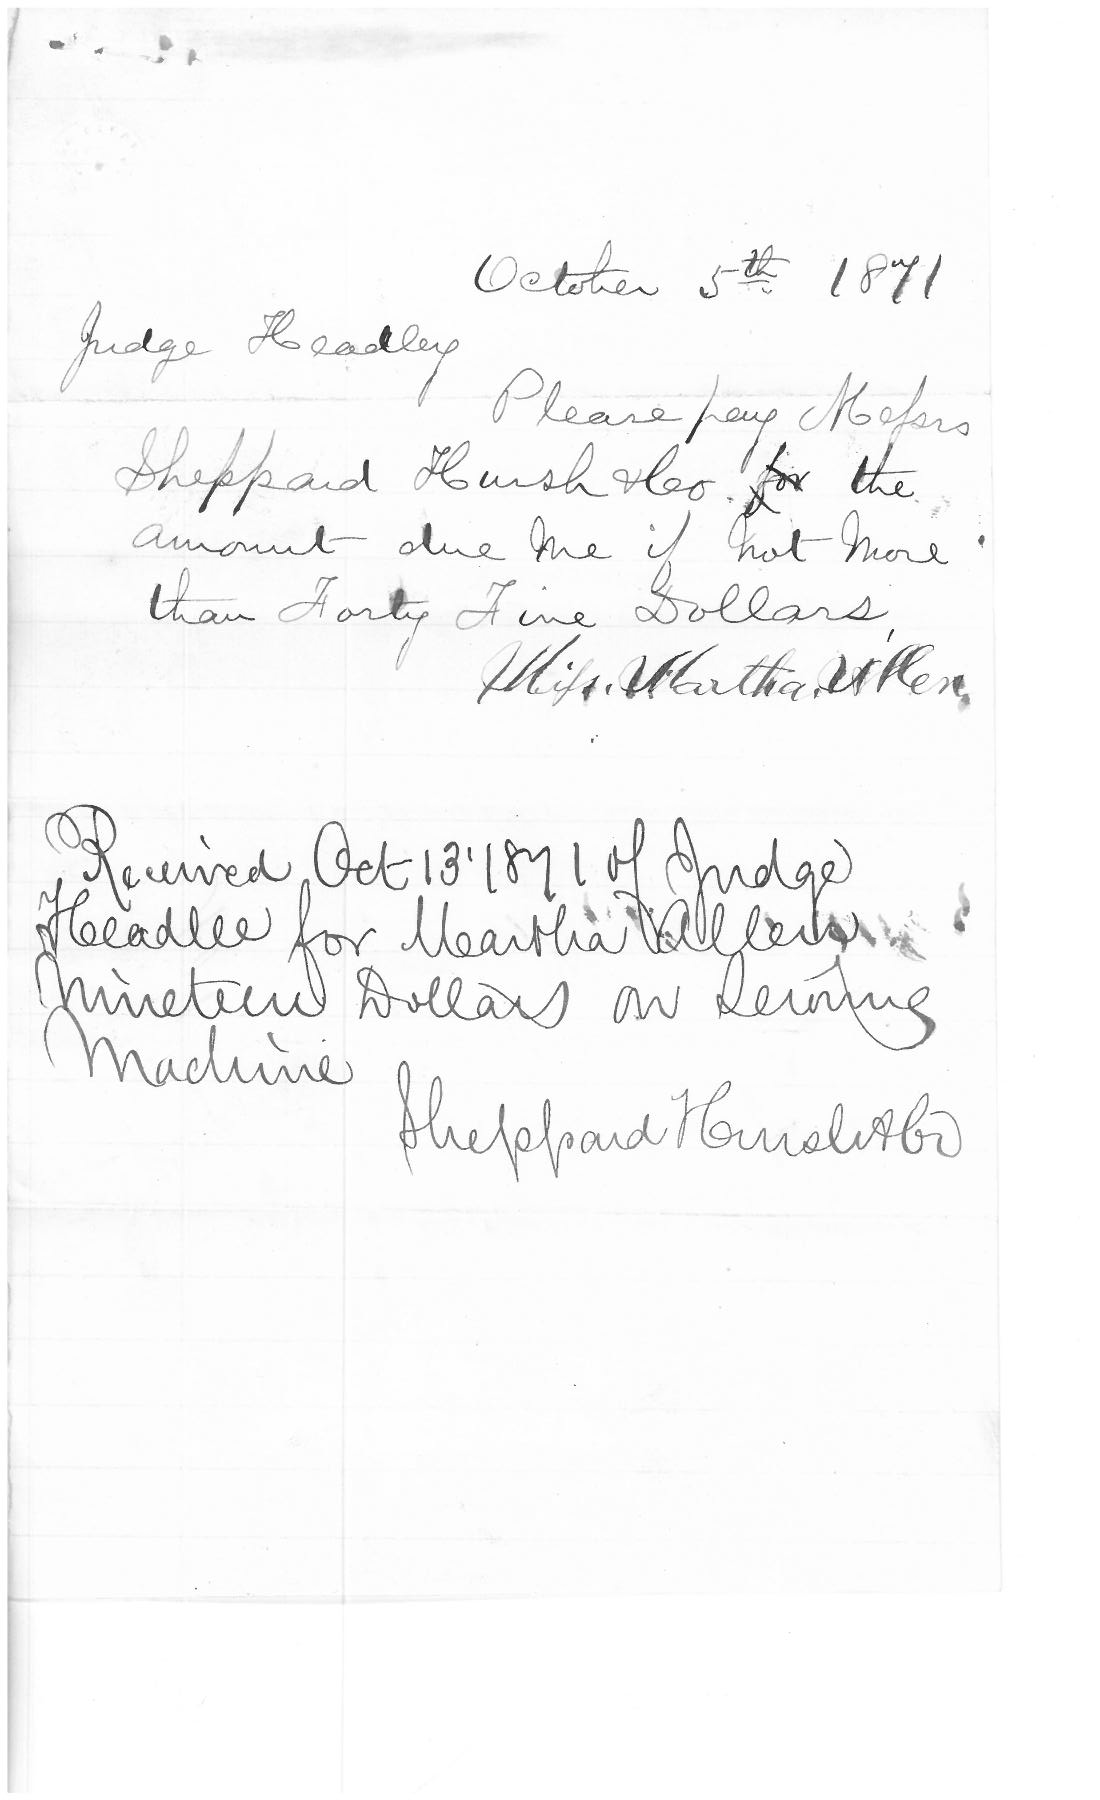 October 5th 1871
Judge Headley
Please pay Messrs
Sheppard Hursh & Co. for the
amount due me if not more
than Forty Five Dollars,
Miss. Martha. Allen.
Received Oct 13' 1871 of Judge
Headlee for Martha Allen
Nineteen Dollars on Sewing
Machine
Sheppard Hursh & Co